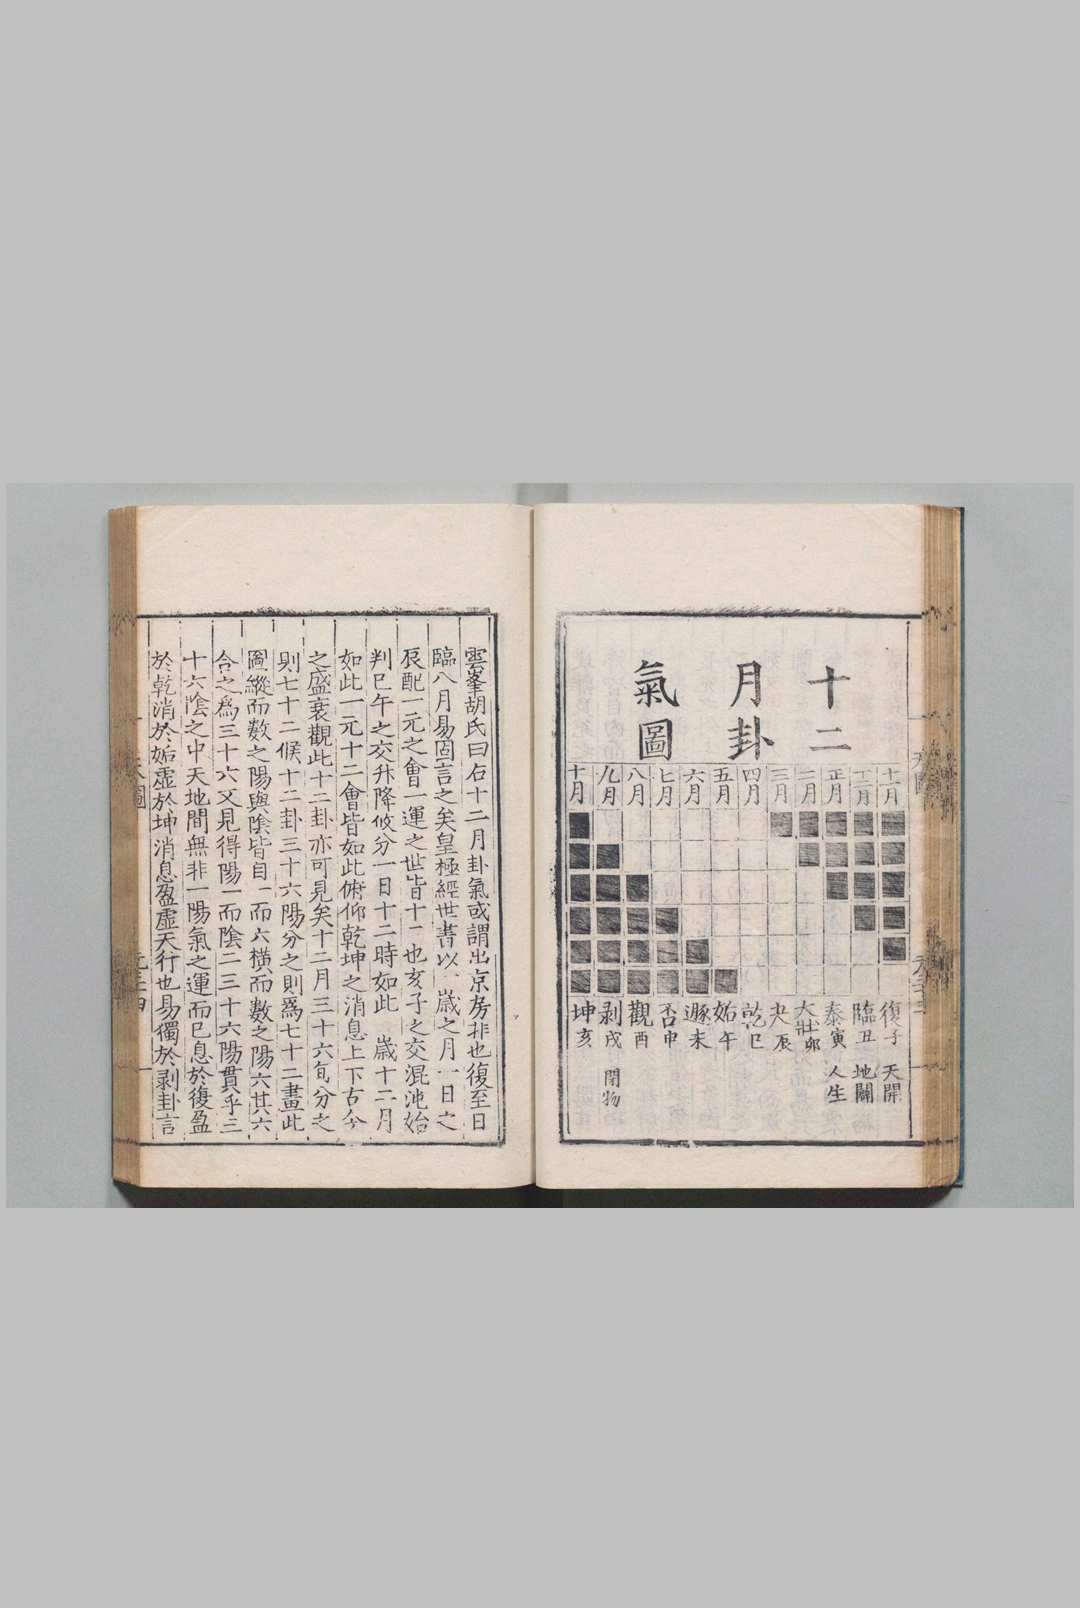 十二
月卦
氣圖
十一月
十二月
正月
二月
三月
四月
五月
六月
七月
八月
九月
十月
復子 天開
臨丑 地闢
泰寅 人生
大壯卯
夬辰
乾巳
姤午
遯未
否申
觀酉
剥戌 閉物
坤亥
雲峯胡氏曰右十二月卦氣或謂出京房非也復至日
臨八月易固言之矣皇極經世書以一歲之月一日之
辰配一元之會一運之世皆十二也亥子之交混沌始
判巳午之交升降攸分一日十二時如此一歲十二月
如此一元十二會皆如此俯仰乾坤之消息上下古今
之盛衰觀此十二卦亦可見矣十二月三十六旬分之
則七十二候十二卦三十六陽分之則爲七十二畫此
圖縱而數之陽與陰皆自一而六橫而數之陽六其六
合之爲三十六又見得陽一而陰二三十六陽貫乎三
十六陰之中天地間無非一陽氣之運而已息於復盈
於乾消於姤虛於坤消息盈虛天行也易獨於剥卦言